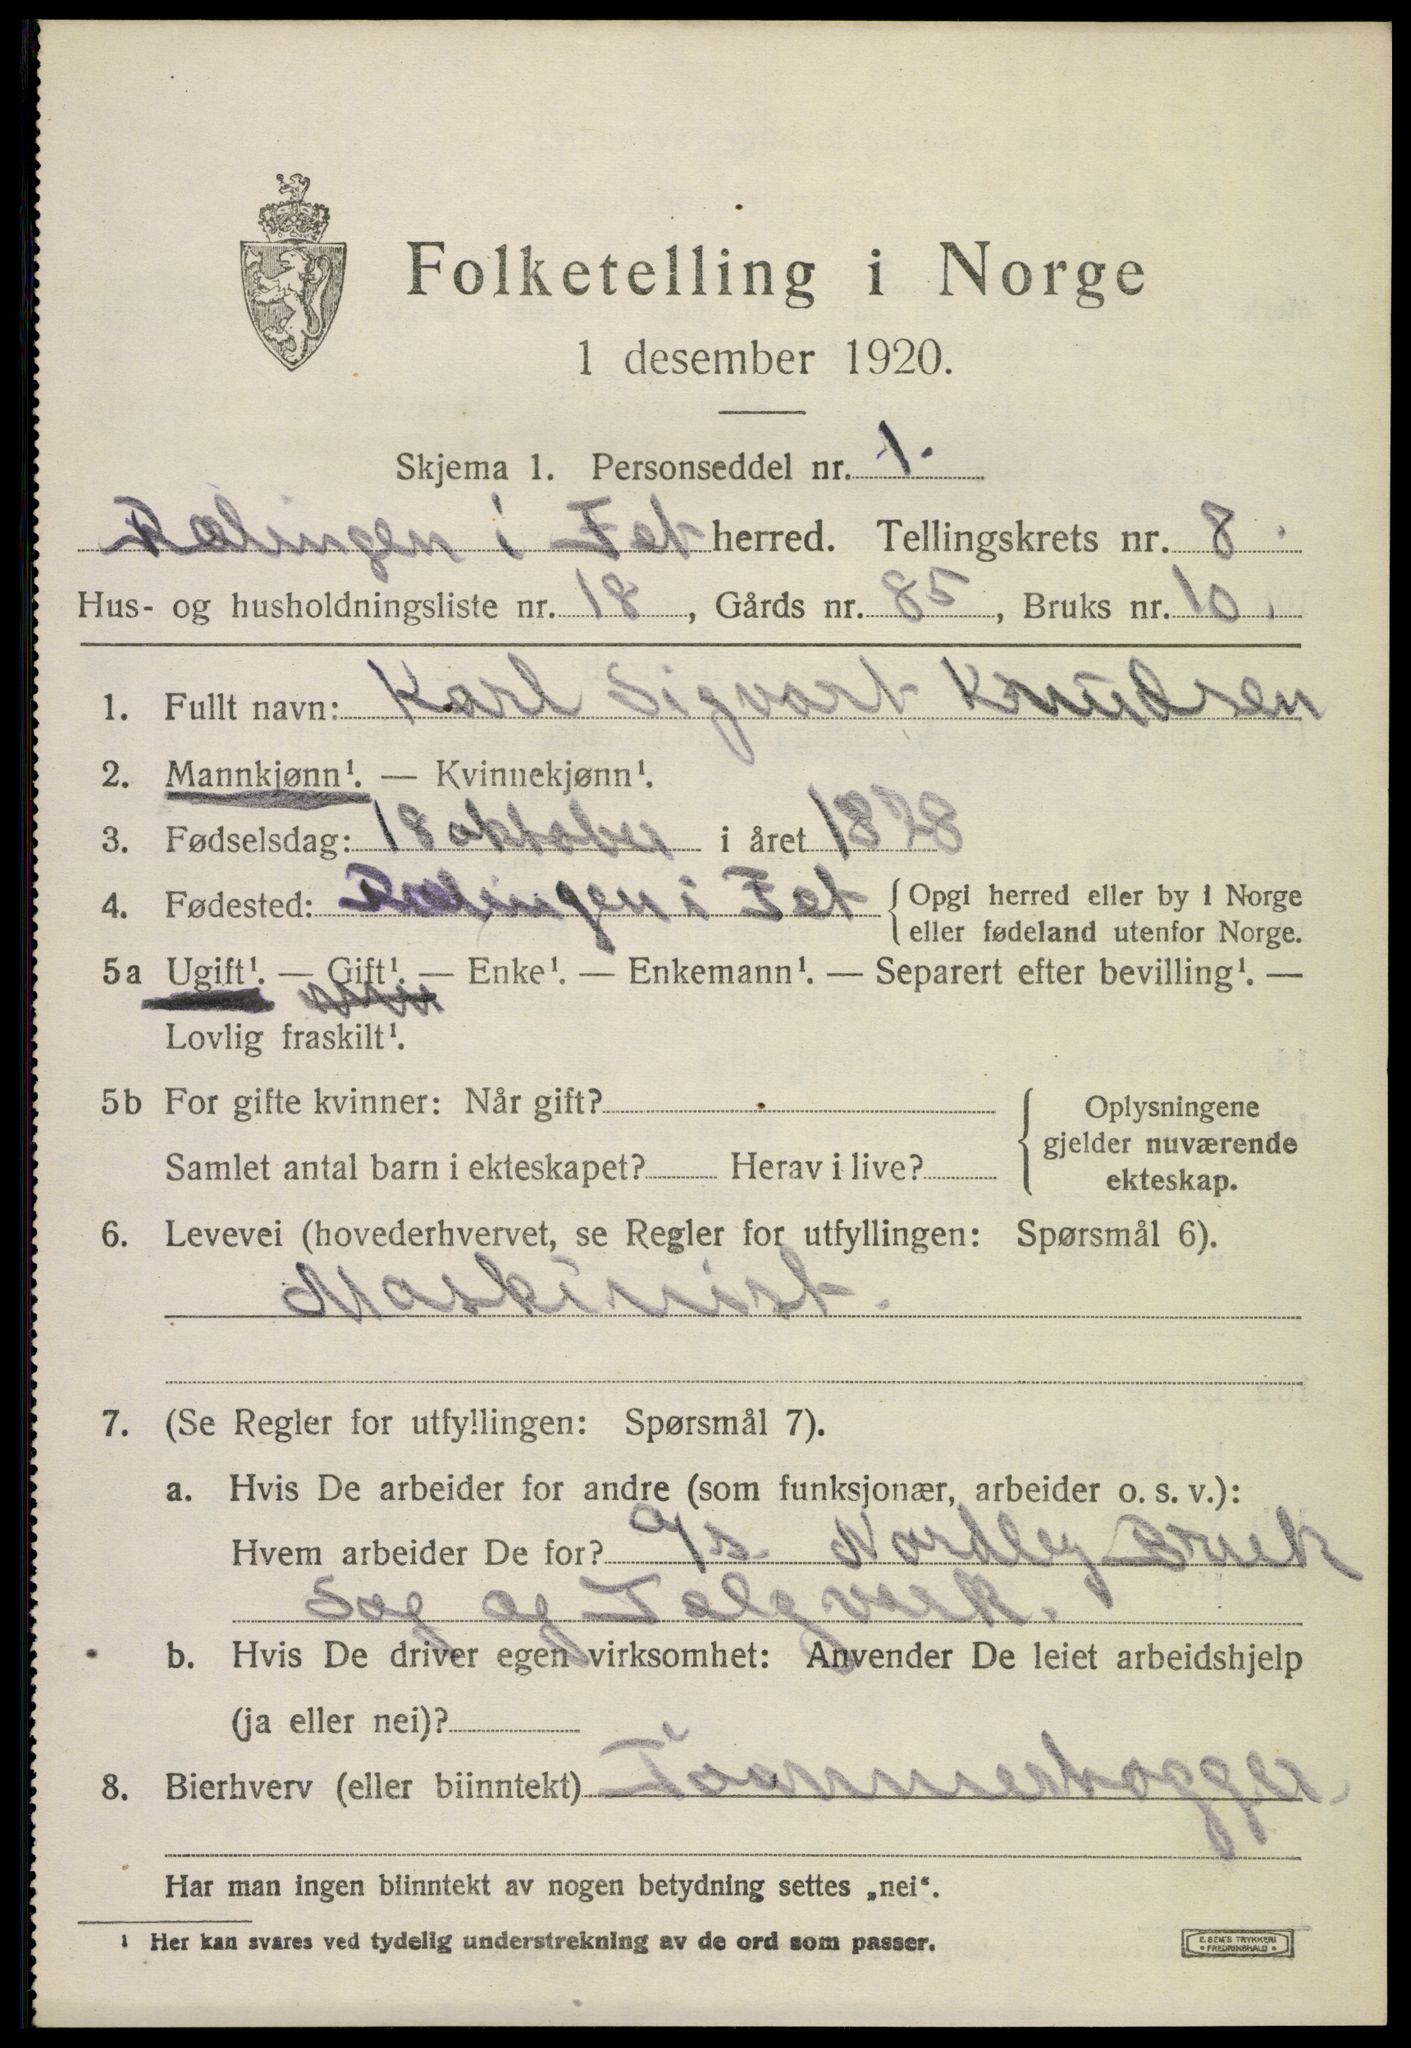 Folketelling i Norge
1 desember 1920.
Skjema 1. Personseddel nr. 1.
Rælingen i Fet herred. Tellingskrets nr. 8.
Hus- og husholdningsliste nr. 18, Gårds nr. 85, Bruks nr. 10.
1. Fullt navn: Karl Sigvart Knudsen
2. Mannkjønn¹. — Kvinnekjønn¹.
3. Fødselsdag: 18 oktober i året 1878
4. Fødested: Rælingen i Fet {Opgi herred eller by i Norge
eller fødeland utenfor Norge.
5a Ugift¹. — Gift¹. — Enke¹. — Enkemann¹. — Separert efter bevilling¹. —
Lovlig fraskilt¹.
5b For gifte kvinner: Når gift?
Samlet antal barn i ekteskapet? Herav i live?
Oplysningene
gjelder nuværende
ekteskap.
6. Levevei (hovederhvervet, se Regler for utfyllingen: Spørsmål 6).
Maskinist.
7. (Se Regler for utfyllingen: Spørsmål 7).
a. Hvis De arbeider for andre (som funksjonær, arbeider o. s. v.):
Hvem arbeider De for? A/s Nordby Bruk
Sag og Telgverk.
b. Hvis De driver egen virksomhet: Anvender De leiet arbeidshjelp
(ja eller nei)?
8. Bierhverv (eller biinntekt) Tømmerhogger.
Har man ingen biinntekt av nogen betydning settes „nei“.
¹ Her kan svares ved tydelig understrekning av de ord som passer.
E. SEM'S TRYKKERI
• FREDRIKSHALD •